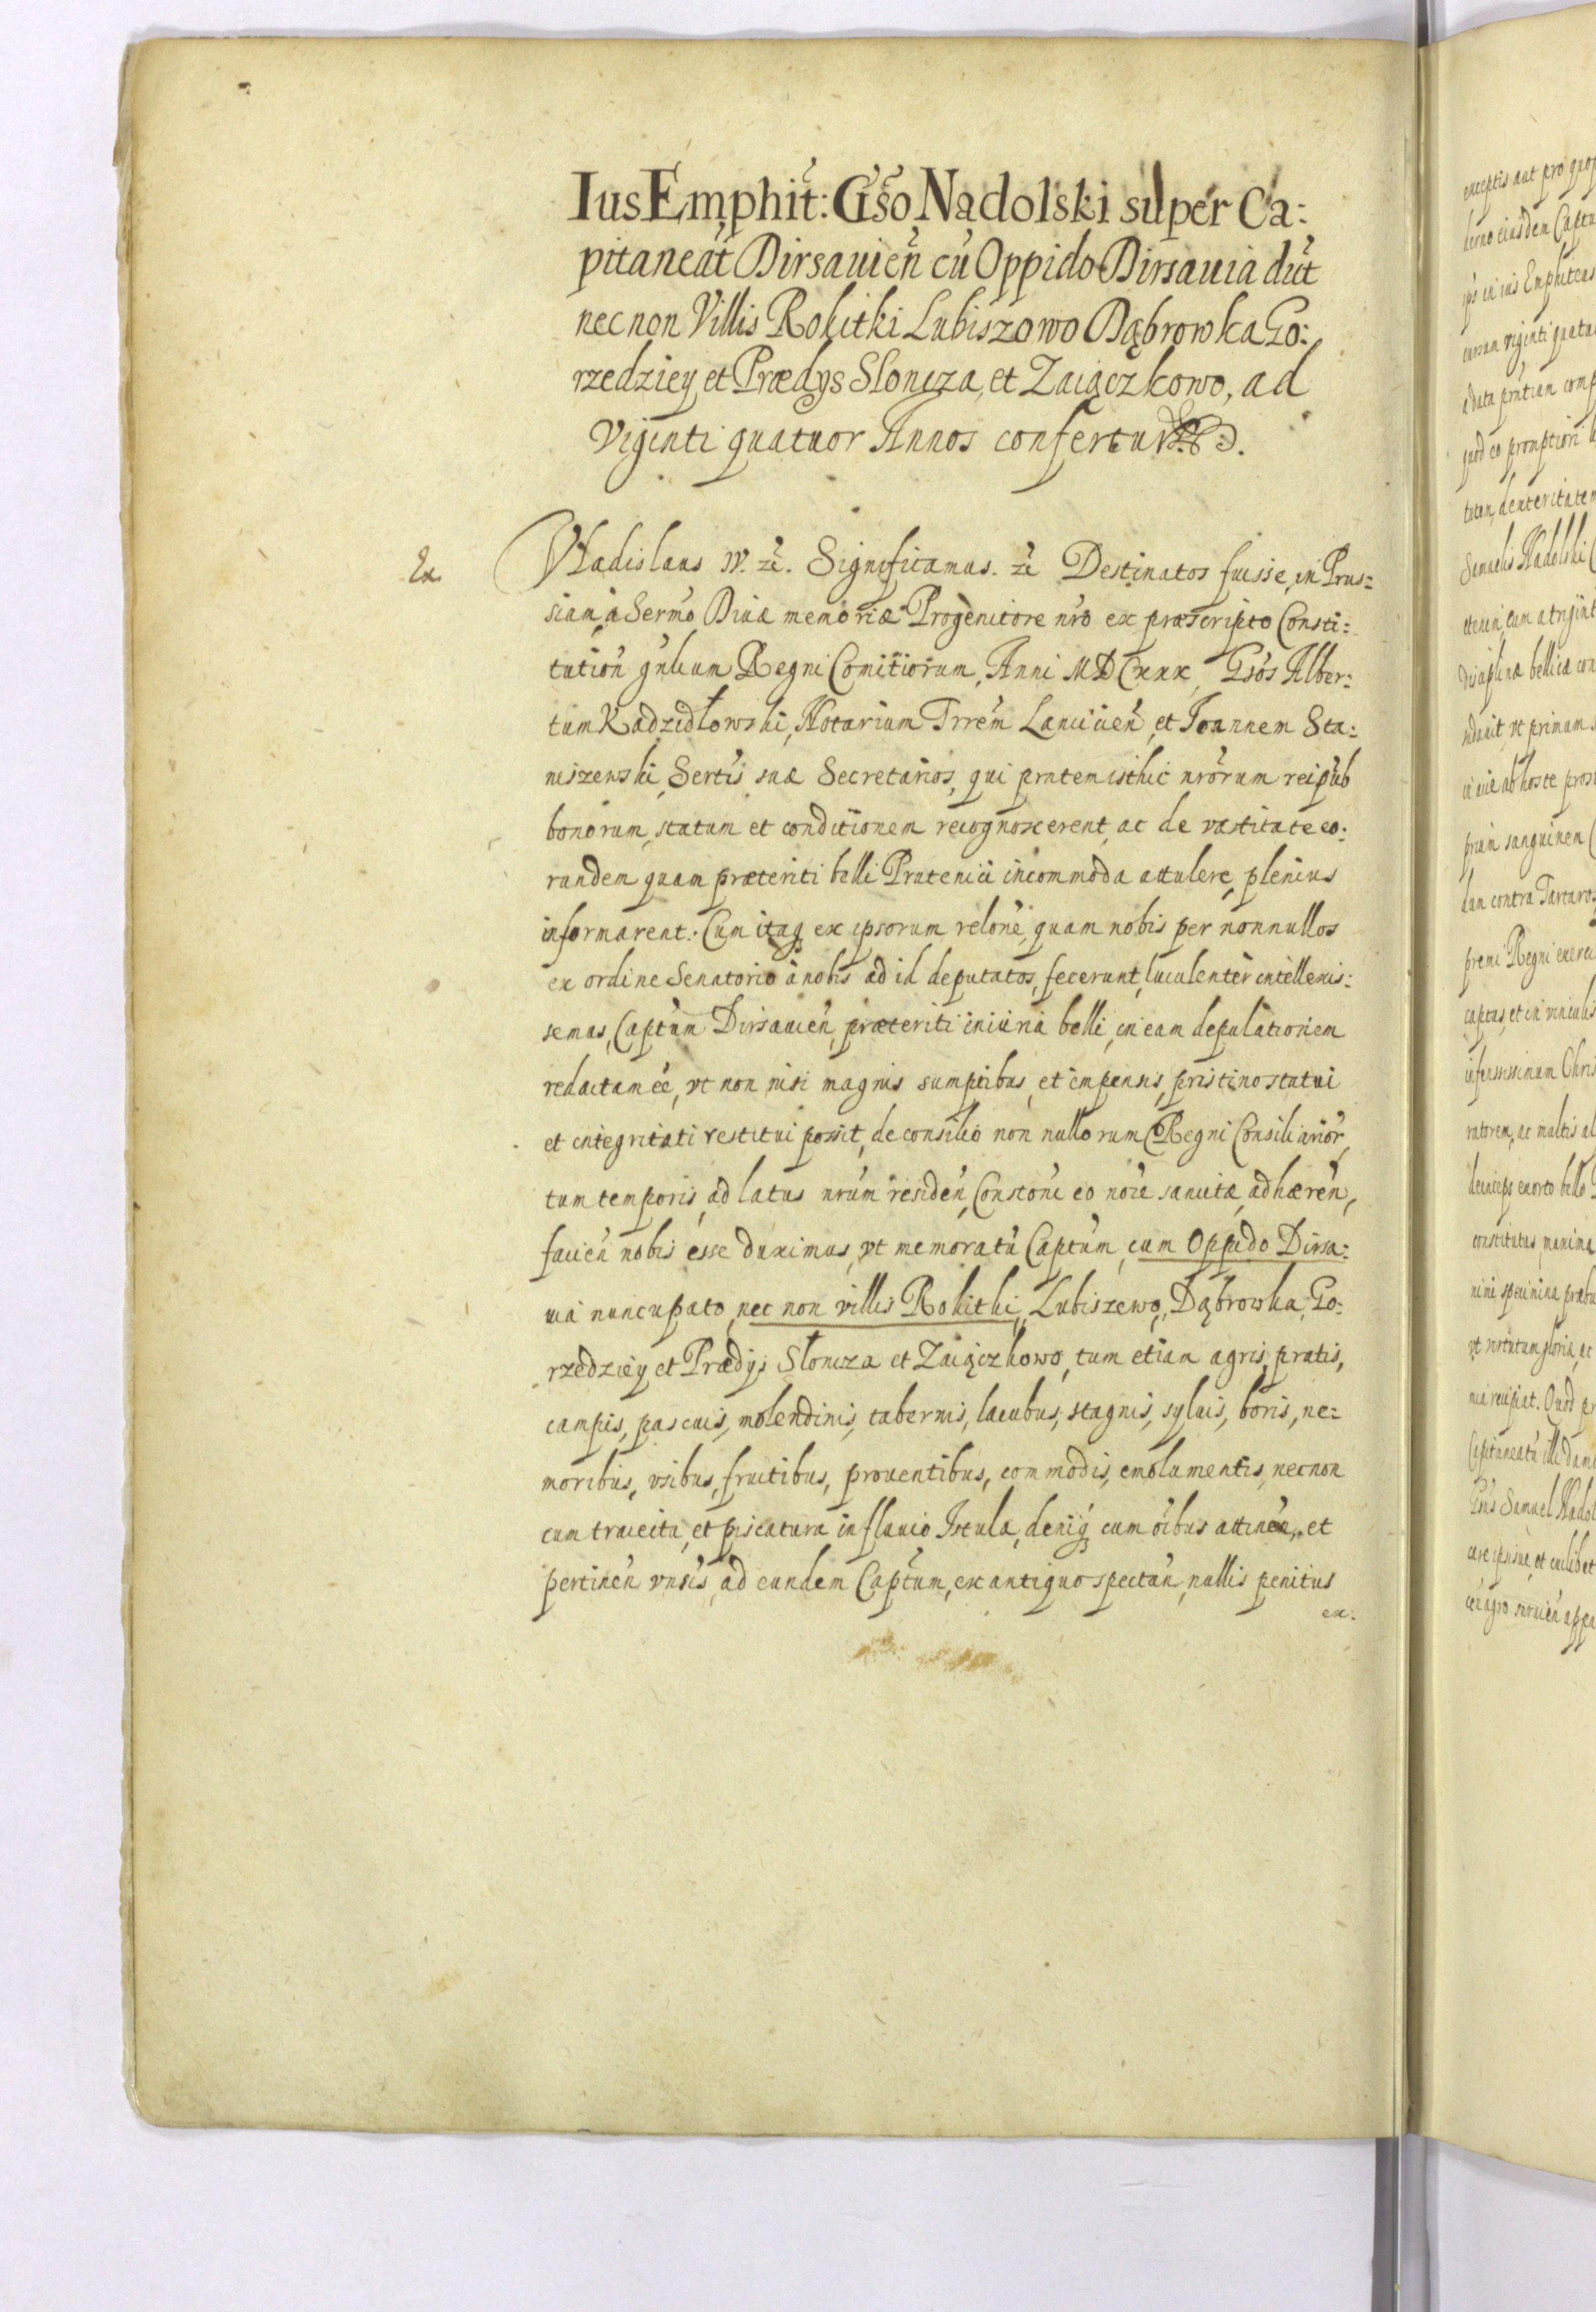 Ius Emphit: Gso Nadolski super Ca:
pitaneat Dirsauien cu Oppido Dirsauia dut
nec non Villis Rokitki Lubiszowo Dąbrowka Go:
rzedziey et Prædys Sloncza, et Zaiączkowo, ad
Viginti quatuor Annos confertur.
Ex
Vladislaus IV. &c. Significamus. &c Destinatos fuisse, in Prus:
siam, a Sermo Diuæ memoriæ Progenitore nro ex præscripto Consti:
tution gnlium Regni Comitiorum, Anni MDCXXX, Gsos Alber:
tum Kadzidłowski, Notarium Trrem Lanciuen, et Ioannem Sta:
niszewski, Sertis suæ Secretarios, qui prntem isthic nrorum reipub
bonorum, statum et conditionem recognoscerent, ac de vastitate eo:
rundem quam præteriti belli Prutenici incommoda attulere, plenius
informarent. Cum itaq ex ipsorum relone, quam nobis per nonnullos
ex ordine Senatorio a nobis ad id deputatos, fecerunt, luculenter intellexis:
semus, Captum Dirsauien, præteriti iniuria belli, in eam depulationem
redactam ee, vt non nisi magnis sumptibus, et impensis, pristino statui
et integritati restitui possit, de consilio non nullorum Regni Consiliarior,
tum temporis, ad latus nrum residen, Constone eo noie sancitæ, adhæren,
facien nobis esse duximus, vt memoratu Captum, cum Oppido Dirsa:
uia nuncupato, nec non villis Rokitki, Lubiszewo, Dąbrowka, Go:
rzedziey et Prædijs Słoncza et Zaiączkowo, tum etiam agris, pratis,
campis, pascuis, molendinis, tabernis, lacubus, stagnis, syluis, boris, ne:
moribus, vsibus, fructibus, prouentibus, commodis, emolumentis, necnon
cum traiectu, et piscatura in fluuio Istula, deniq cum oibus attinen, et
pertinen vnsis, ad eundem Captum, ex antiquo spectan, nullis penitus
ex: